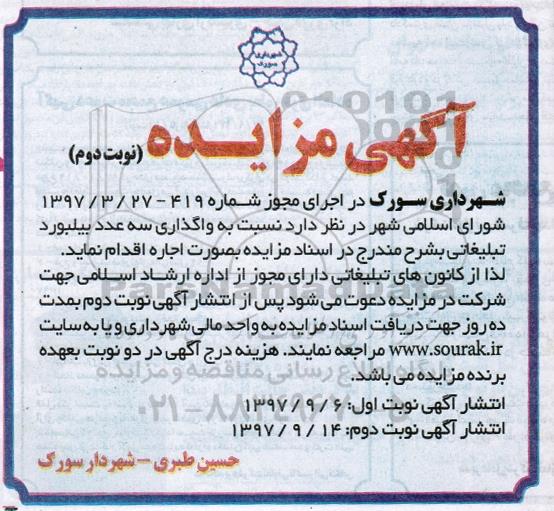 شهرداری
سورک
آگهی مزایده (نوبت دوم)
شهرداری سورک در اجرای مجوز شماره ۴۱۹ - ۲۷ / ۳ / ۱۳۹۷
شورای اسلامی شهر در نظر دارد نسبت به واگذاری سه عدد بیلبورد
تبلیغاتی بشرح مندرج در اسناد مزایده بصورت اجاره اقدام نماید.
لذا از کانون های تبلیغاتی دارای مجوز از اداره ارشاد اسلامی جهت
شرکت در مزایده دعوت می شود پس از انتشار آگهی نوبت دوم بمدت
ده روز جهت دریافت اسناد مزایده به واحد مالی شهرداری و یا به سایت
www.sourak.ir مراجعه نمایند. هزینه درج آگهی در دو نوبت بعهده
برنده مزایده می باشد.
انتشار آگهی نوبت اول: ۶ / ۹ / ۱۳۹۷
انتشار آگهی نوبت دوم: ۱۴ / ۹ / ۱۳۹۷
حسین طبری – شهردار سورک